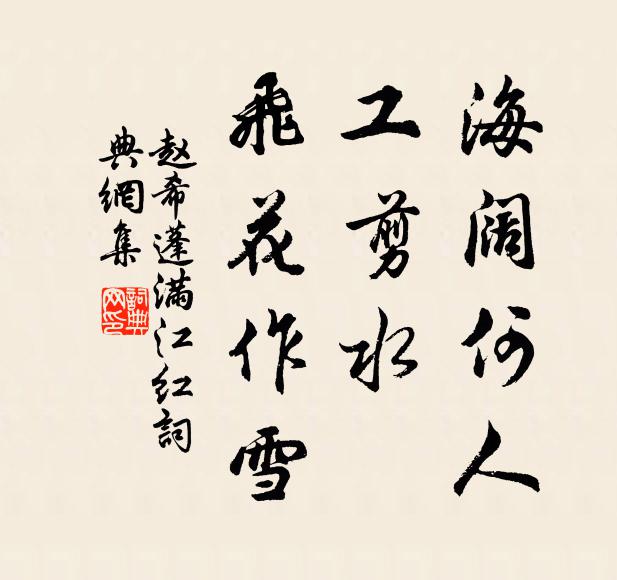 海阔何人
工剪水
飛花作雪
赵希蓬满江红詞
典網集
詞典
网印